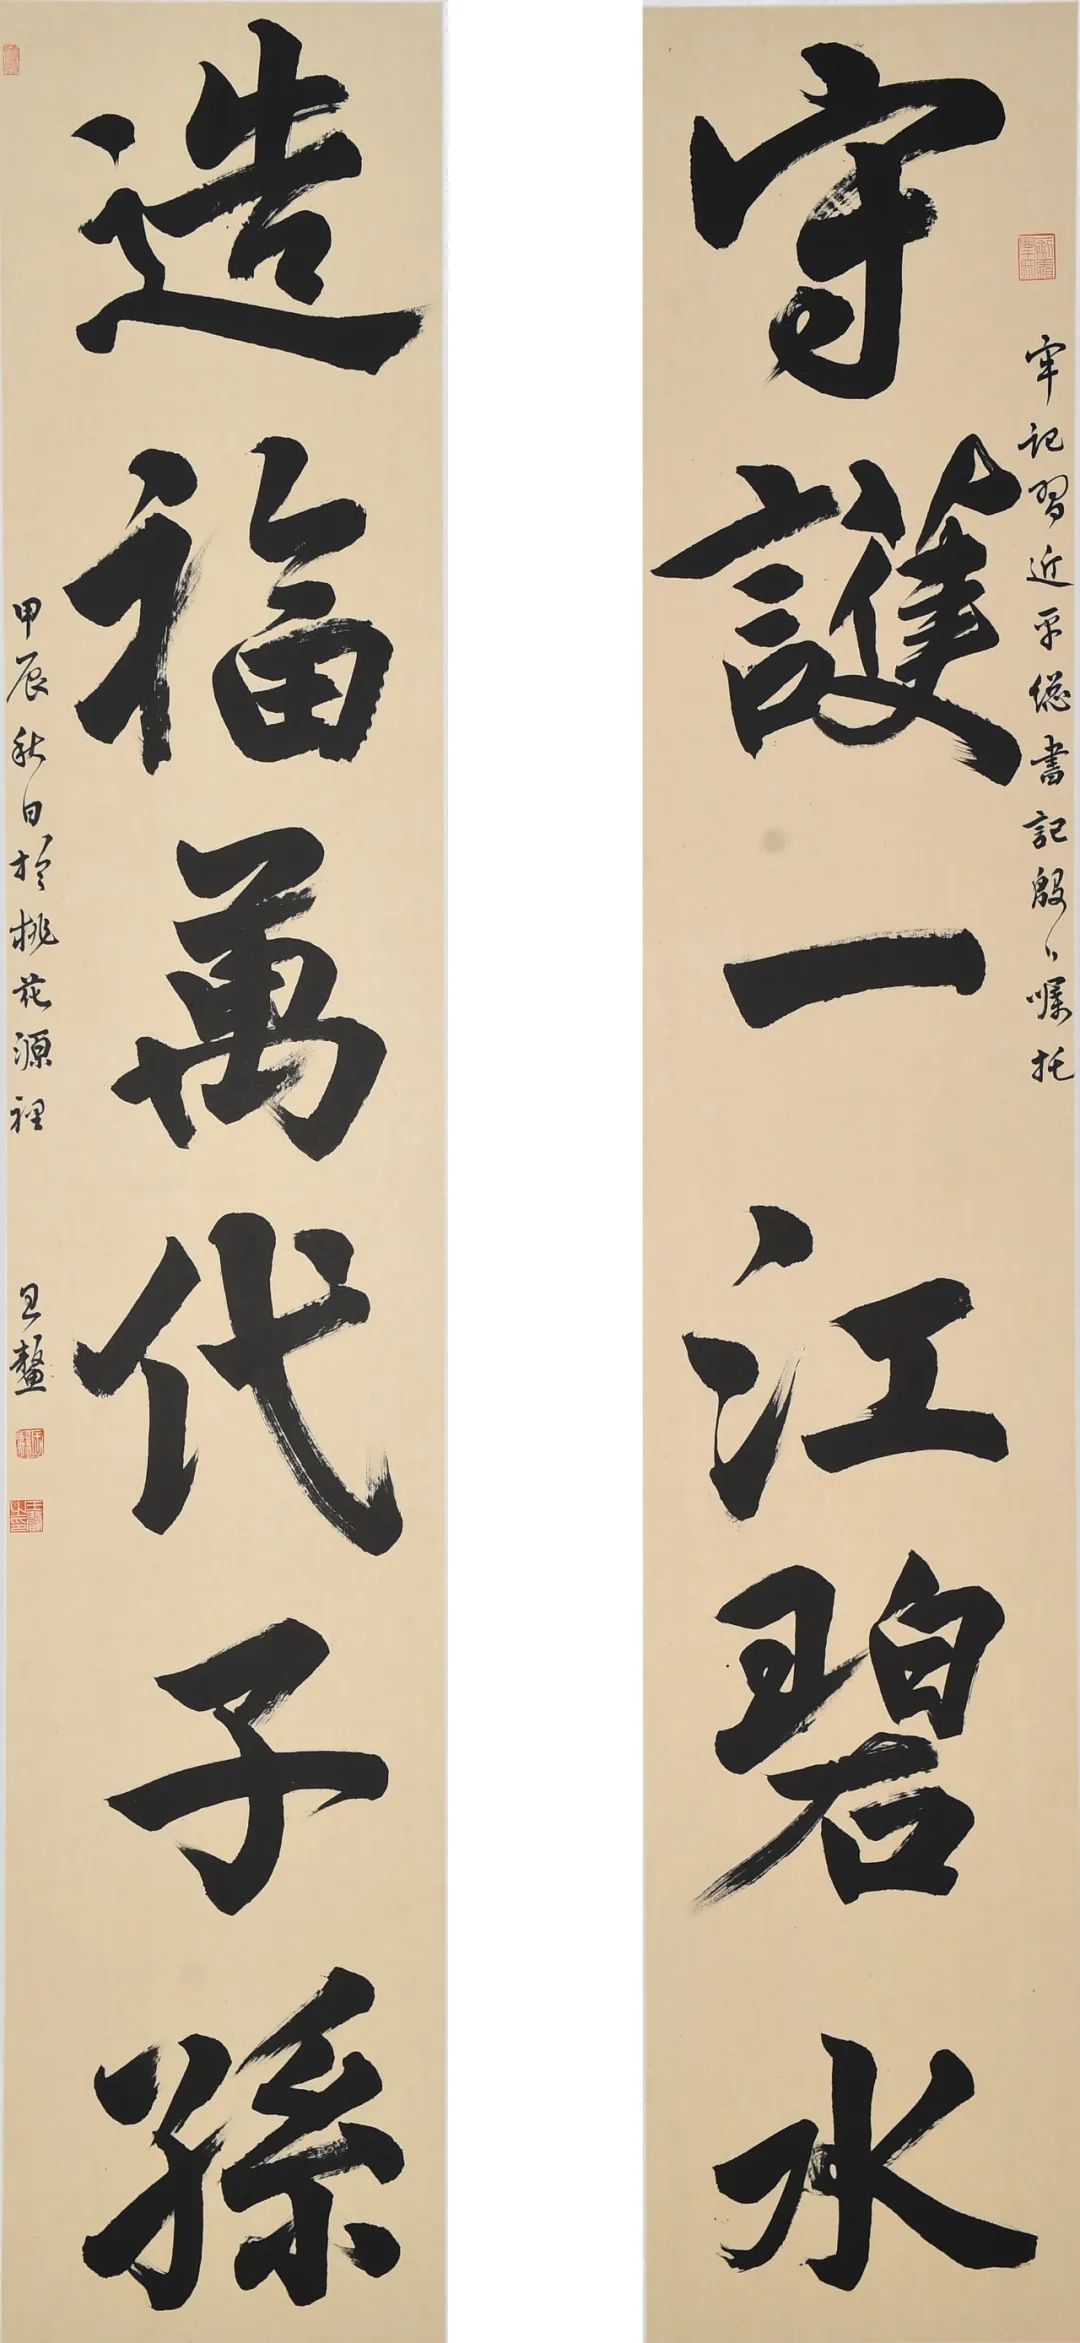 守護一江碧水
牢记習近平總書記殷殷嘱托
造福萬代子孫
甲辰秋日於桃花源裡